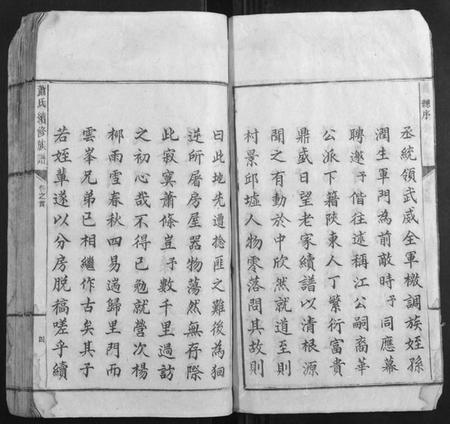 總序
丞統領武威全軍檄調族姪孫
潤生軍門為前敵時予同應幕
聘邀予偕往述稱江公嗣裔華
公派下籍陝東人丁繁衍富貴
鼎盛日望老家續譜以清根源
聞之有動於中欣然就道至則
村景邱墟人物零落問其故則
曰此地先遭捻匪之難後為狪
逆所屠房屋器物蕩然無存際
此寂寞蕭條豈予數千里過訪
之初心哉不得已勉就營次楊
柳雨雪春秋四易過歸里門而
雲峯兄弟已相繼作古矣其子
若姪輩遂以分房脫稿嗟乎續
蕭氏續修族譜
卷之首
四